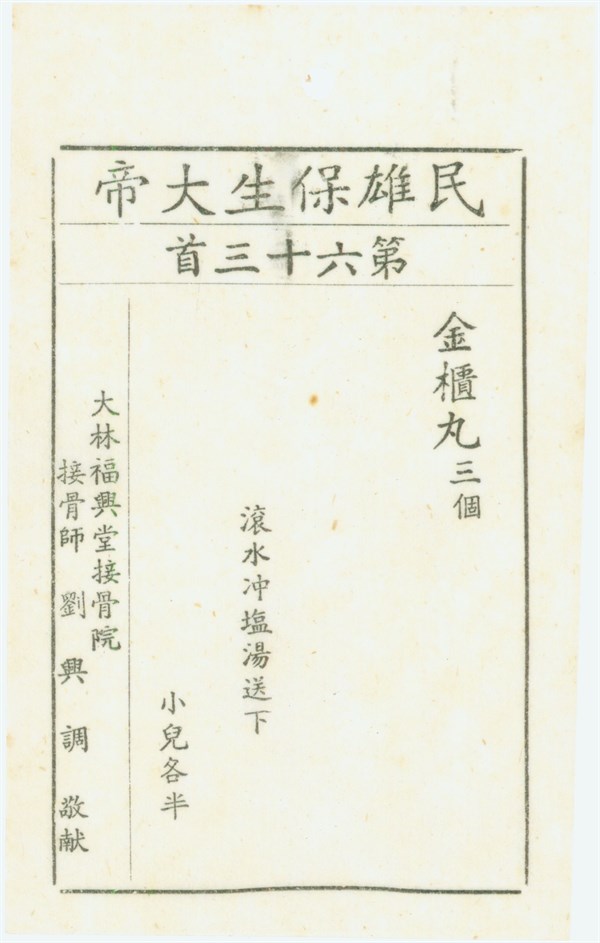 民雄保生大帝
第六十三首
金櫃丸三個
滾水冲塩湯送下
小兒各半
大林福興堂接骨院
接骨師 劉興調 敬献